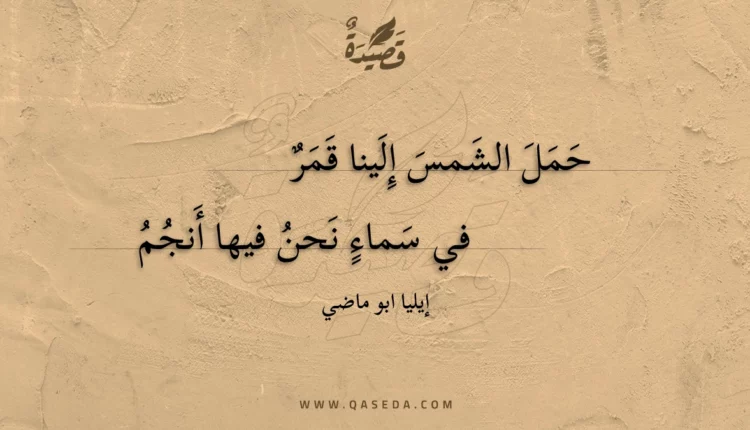 قَصِيدَةٌ
حَمَلَ الشَمسَ إِلَينا قَمَرٌ
في سَماءٍ نَحنُ فيها أَنجُمُ
إيليا ابو ماضي
WWW.QASEDA.COM